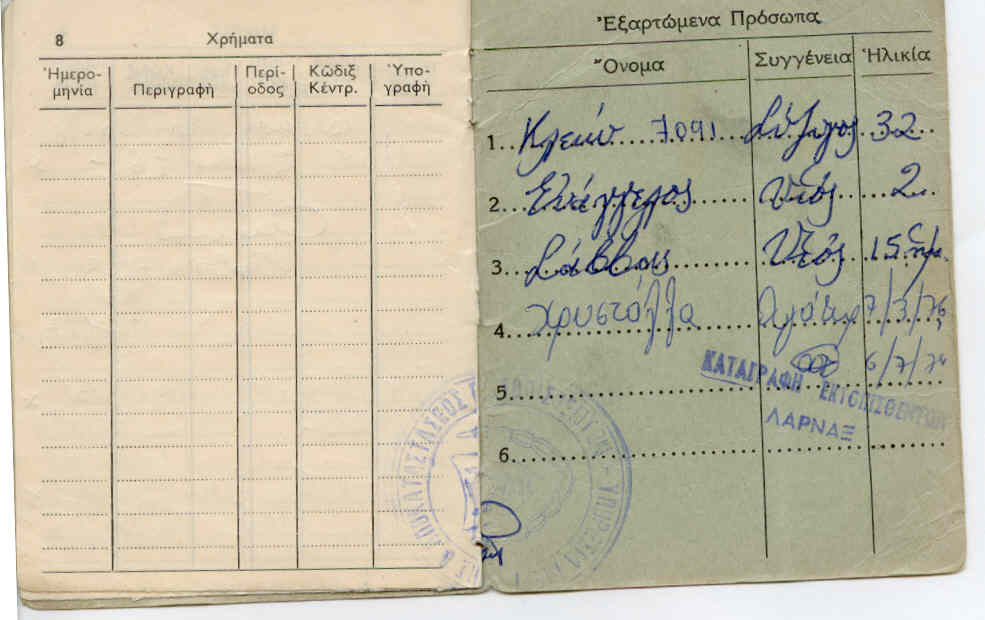 8 Χρήματα
Ἡμερο-μηνία Περιγραφὴ Περί-οδος Κῶδιξ Κέντρ. Ὑπο-γραφὴ
Ἐξαρτώμενα Πρόσωπα
Ὄνομα Συγγένεια Ἡλικία
1. 7091 Σύζυγος 32
2. Ευάγγελος Υιός 2
3. Σάββας Υιός 15
4. Χρυστάλλα 7/3/76
6/7/76
5.
6.
ΚΑΤΑΓΡΑΦΗ ΕΚΤΟΠΙΣΘΕΝΤΩΝ
ΛΑΡΝΑΞ